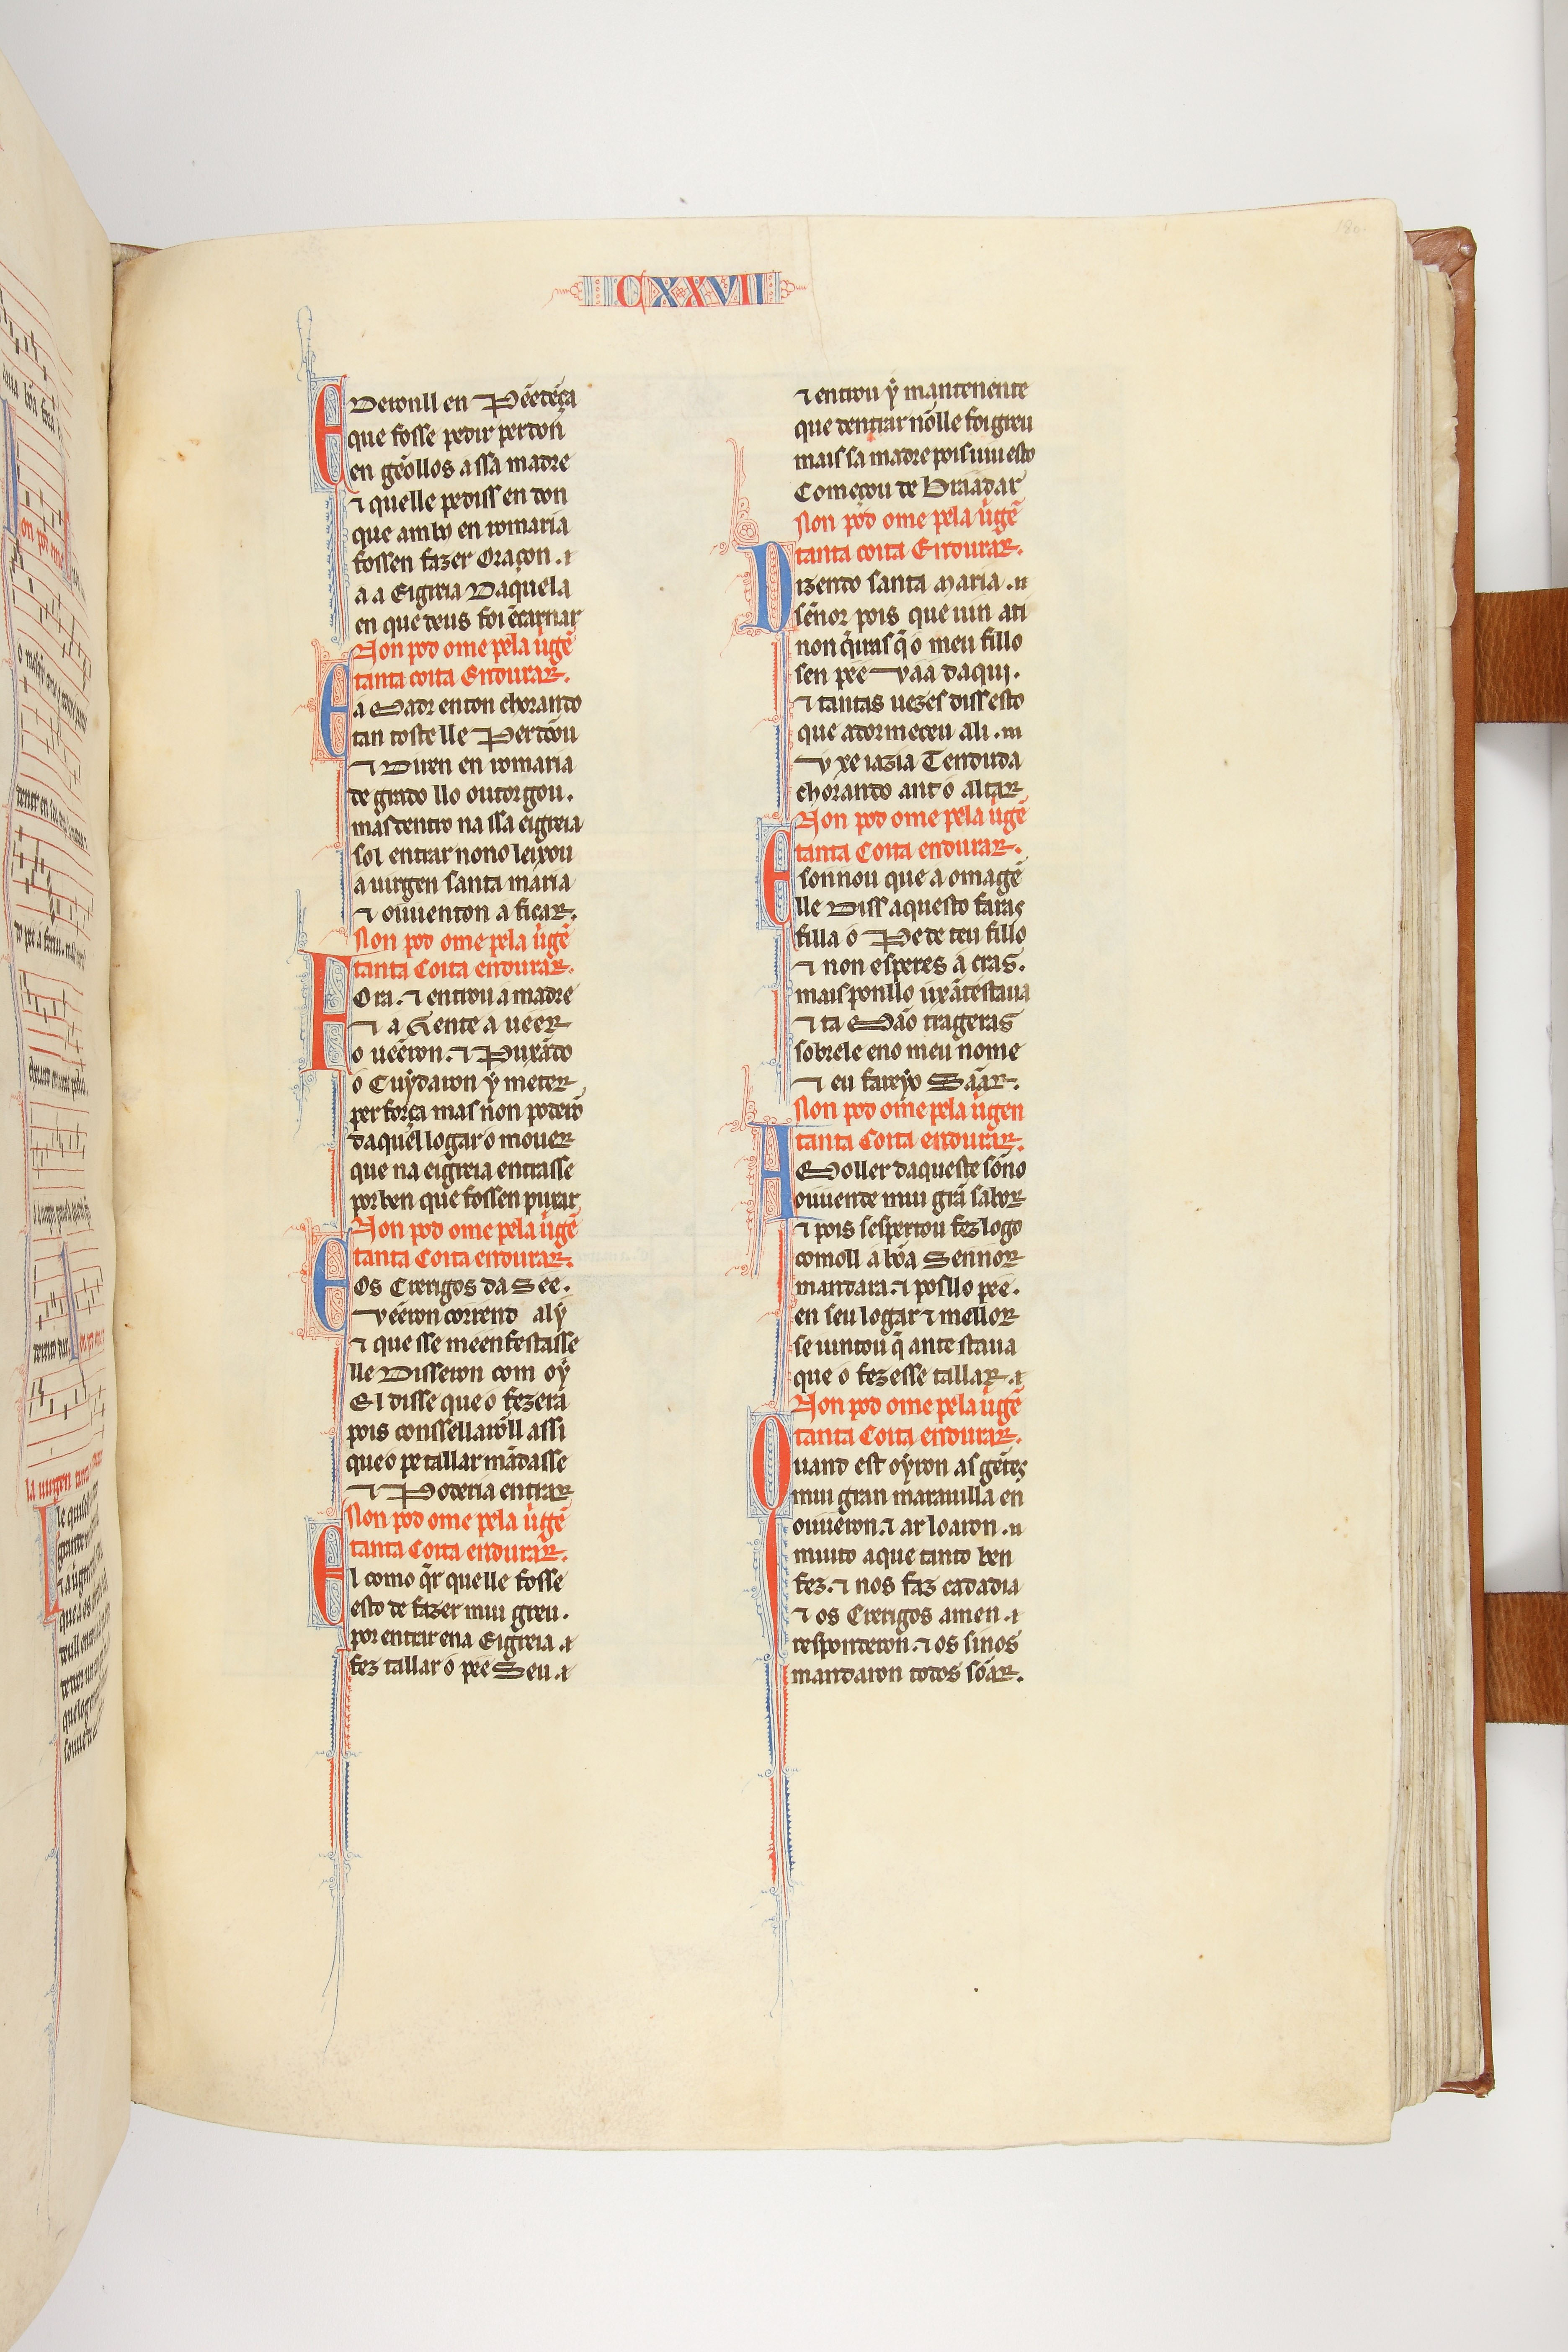 CXXVII
E Deronll en Pẽetẽça
que fosse pedir perdon
en gẽollos a ssa madre
⁊ quelle pediss en don
que ambos en romaria
fossen fazer Oraçon. ⁊
a a Eigreia Daquela
en que deus foi ẽcarnar
Non pod ome pela ũgẽ
tanta coita Endurar.
E a Madr enton chorando
tan toste lle Perdõou
⁊ Dir en en romaria
de grado llo outorgou.
mas dentro na ssa eigreia
sol entrar nono leixou
a uirgen santa maria
⁊ ouuenton a ficar.
Non pod ome pela ũgẽ
tanta Coita endurar.
F Ora. ⁊ entrou a madre
⁊ a Gente a ueer
o ueẽron. ⁊ Puxãdo
o Cuydaron ẏ meter
per força mas non poderõ
daquel logar o mouer
que na eigreia entrasse
por ben que fossen puxar
Non pod ome pela ũgẽ
tanta Coita endurar.
E Os Crerigos da See.
veẽron corrend alẏ
⁊ que sse meenfestasse
lle Disseron com oẏ
El disse que o fezera
pois conssellarõll assi
que o pe tallar mãdasse
⁊ Poderia entrar
Non pod ome pela ũgẽ
tanta Coita endurar.
E l como q̃r quelle fosse
esto de fazer mui greu.
por entrar ena Eigreia. ⁊
fez tallar o pee Seu. ⁊
⁊ entrou ẏ mantenente
que dentrar nõlle foi greu
mais sa madre pois uiu esto
Começou de Braadar
Non pod ome pela ũgẽ
tanta coita Endurar.
D izendo santa Maria. n
sẽnor pois que uin a ti
non q̃iras q̃ o meu fillo
sen pee vaa daqui.
⁊ tantas uezes diss esto
que adormeceu ali. m
v xe iazia Tenduda
chorando ant o altar
Non pod ome pela ũgẽ
tanta Coita endurar.
E sonnou que a omagẽ
lle Diss aquesto faras
filla o Pe de teu fillo
⁊ non esperes a cras.
mais ponllo ũ xãtestaua
⁊ ta Mão trageras
sobrele eno meu nome
⁊ eu fareẏo Sãar.
Non pod ome pela ũgen
tanta Coita endurar.
A Moller daqueste sõno
ouuende mui grã sabor
⁊ pois sespertou fez logo
comoll a bõa Sennor
mandara. ⁊ posllo pee.
en seu logar ⁊ mellor
se iuntou q̃ ante staua
que o fezesse tallar. ⁊
Non pod ome pela ũgẽ
tanta Coita endurar.
Q uand est oẏron as gẽtes
mui gran marauilla en
ouueron. ⁊ ar loaron. n
muito aque tanto ben
fez. ⁊ nos faz cada dia
⁊ os Crerigos amen. ⁊
responderon. ⁊ os sinos
mandaron todos sõar.